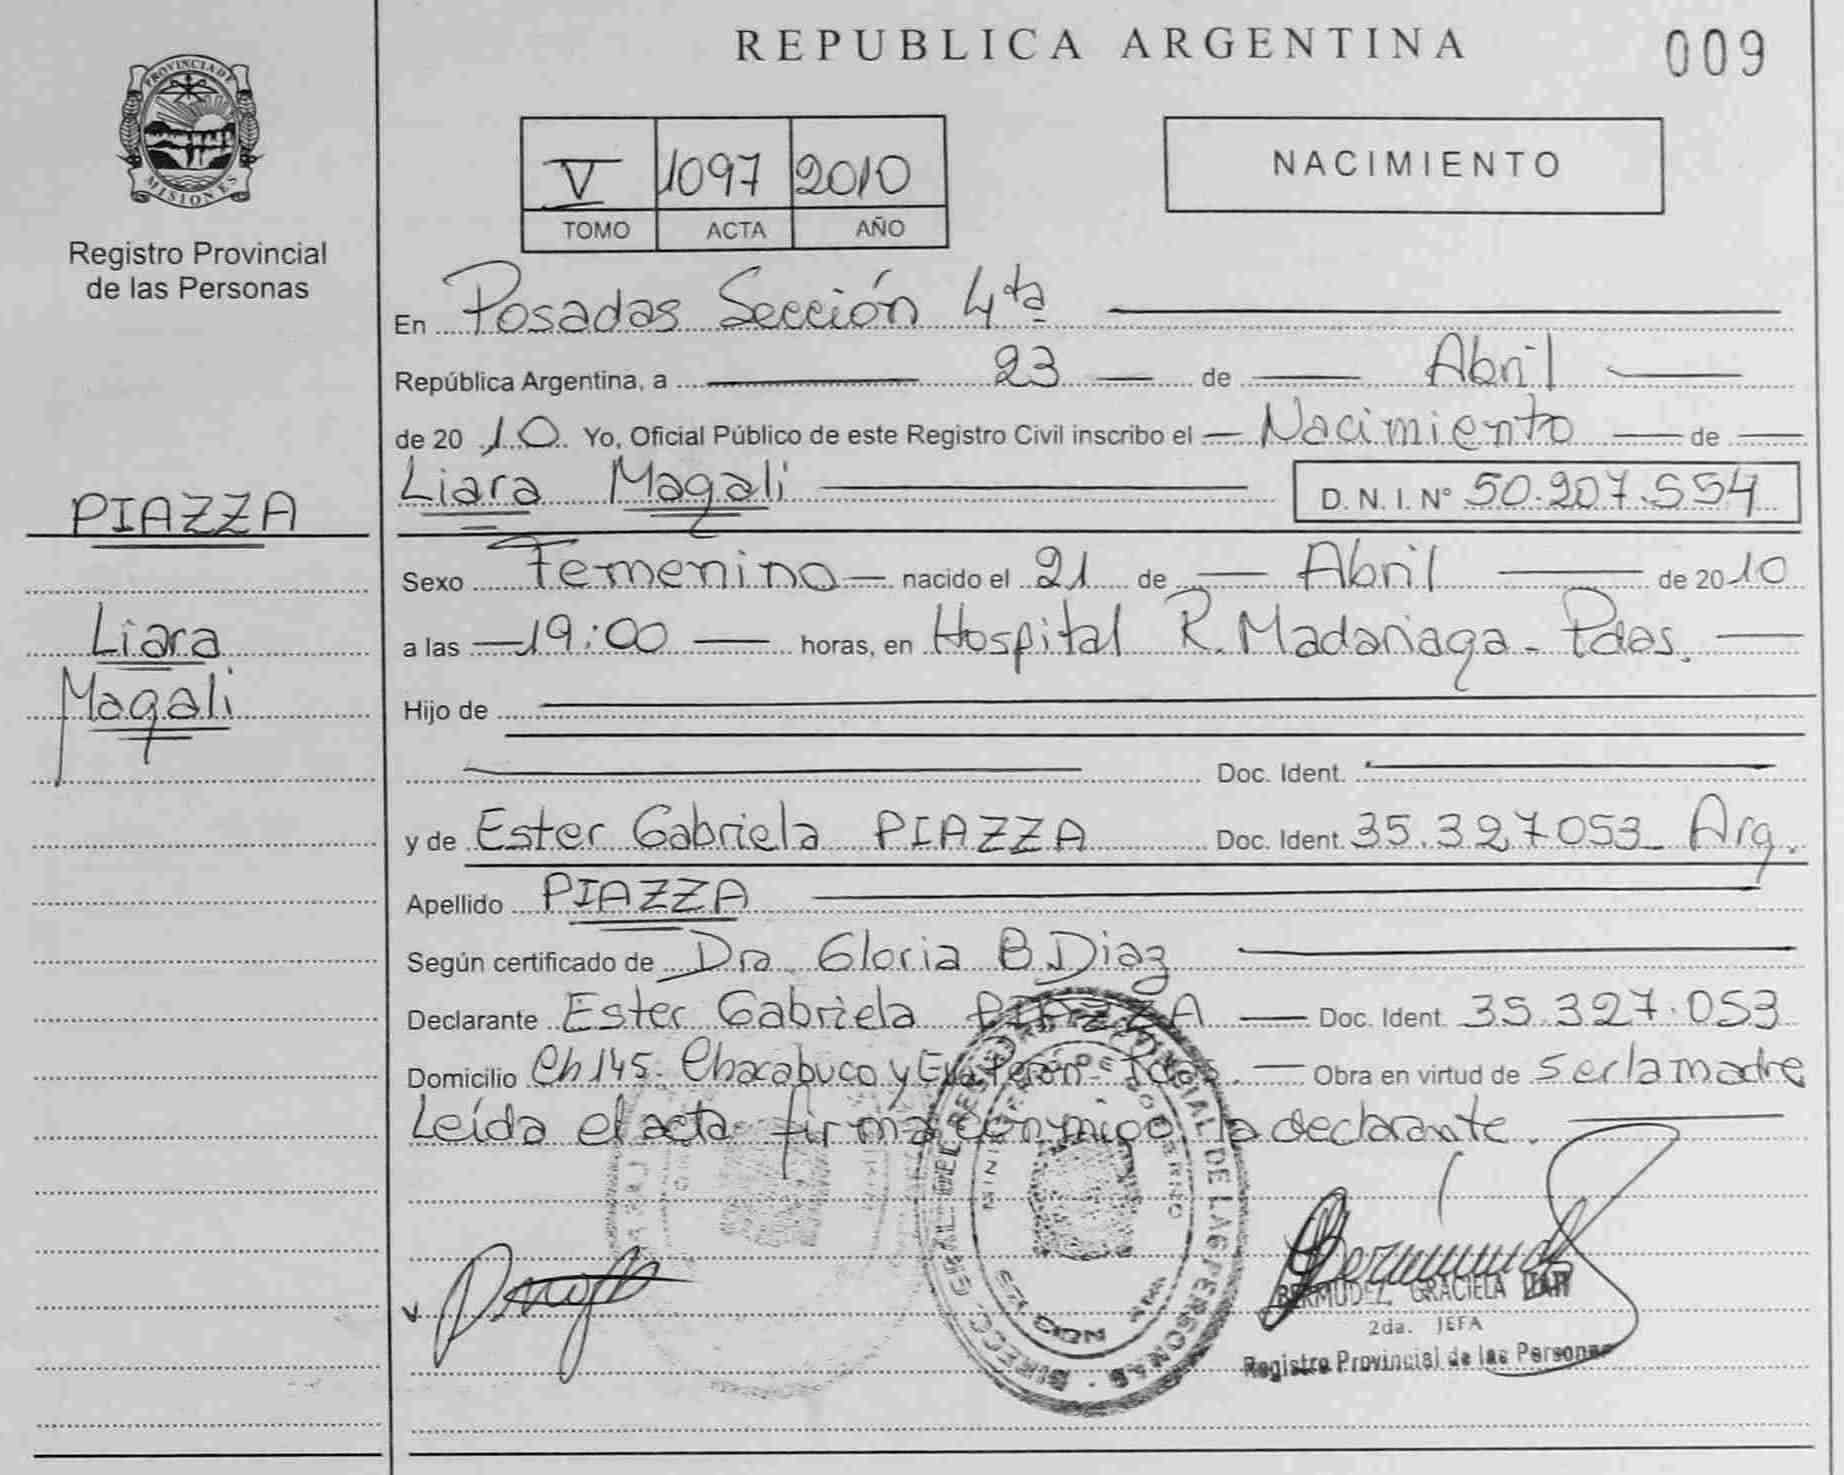 REPUBLICA ARGENTINA
009
PROVINCIA DE
MISIONES
Registro Provincial
de las Personas
V 1097 2010
TOMO ACTA AÑO
NACIMIENTO
En Posadas Sección 4ta
República Argentina, a 23 de Abril
de 2010 Yo, Oficial Público de este Registro Civil inscribo el Nacimiento de
Liara Magali D. N. I. N° 50.207.554
PIAZZA
Liara
Magali
Sexo Femenino nacido el 21 de Abril de 2010
a las 19:00 horas, en Hospital R. Madariaga - Pdas.
Hijo de
Doc. Ident.
y de Ester Gabriela PIAZZA Doc. Ident. 35.327053 Arg.
Apellido PIAZZA
Según certificado de Dra. Gloria B. Diaz
Declarante Ester Gabriela PIAZZA Doc. Ident. 35.327.053
Domicilio Ch 145. Chacabuco y Eva Perón - Pdas. Obra en virtud de ser la madre
Leída el acta firma conmigo la declarante.
MINISTERIO DE GOBIERNO
MISIONES
BERMUDEZ, GRACIELA
2da. JEFA
Registro Provincial de las Personas